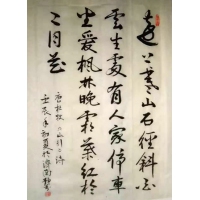 遠上寒山石徑斜白
雲生處有人家停車
坐爱枫林晚霜葉紅於
二月花
唐杜牧山行诗
壬辰年初夏於济南